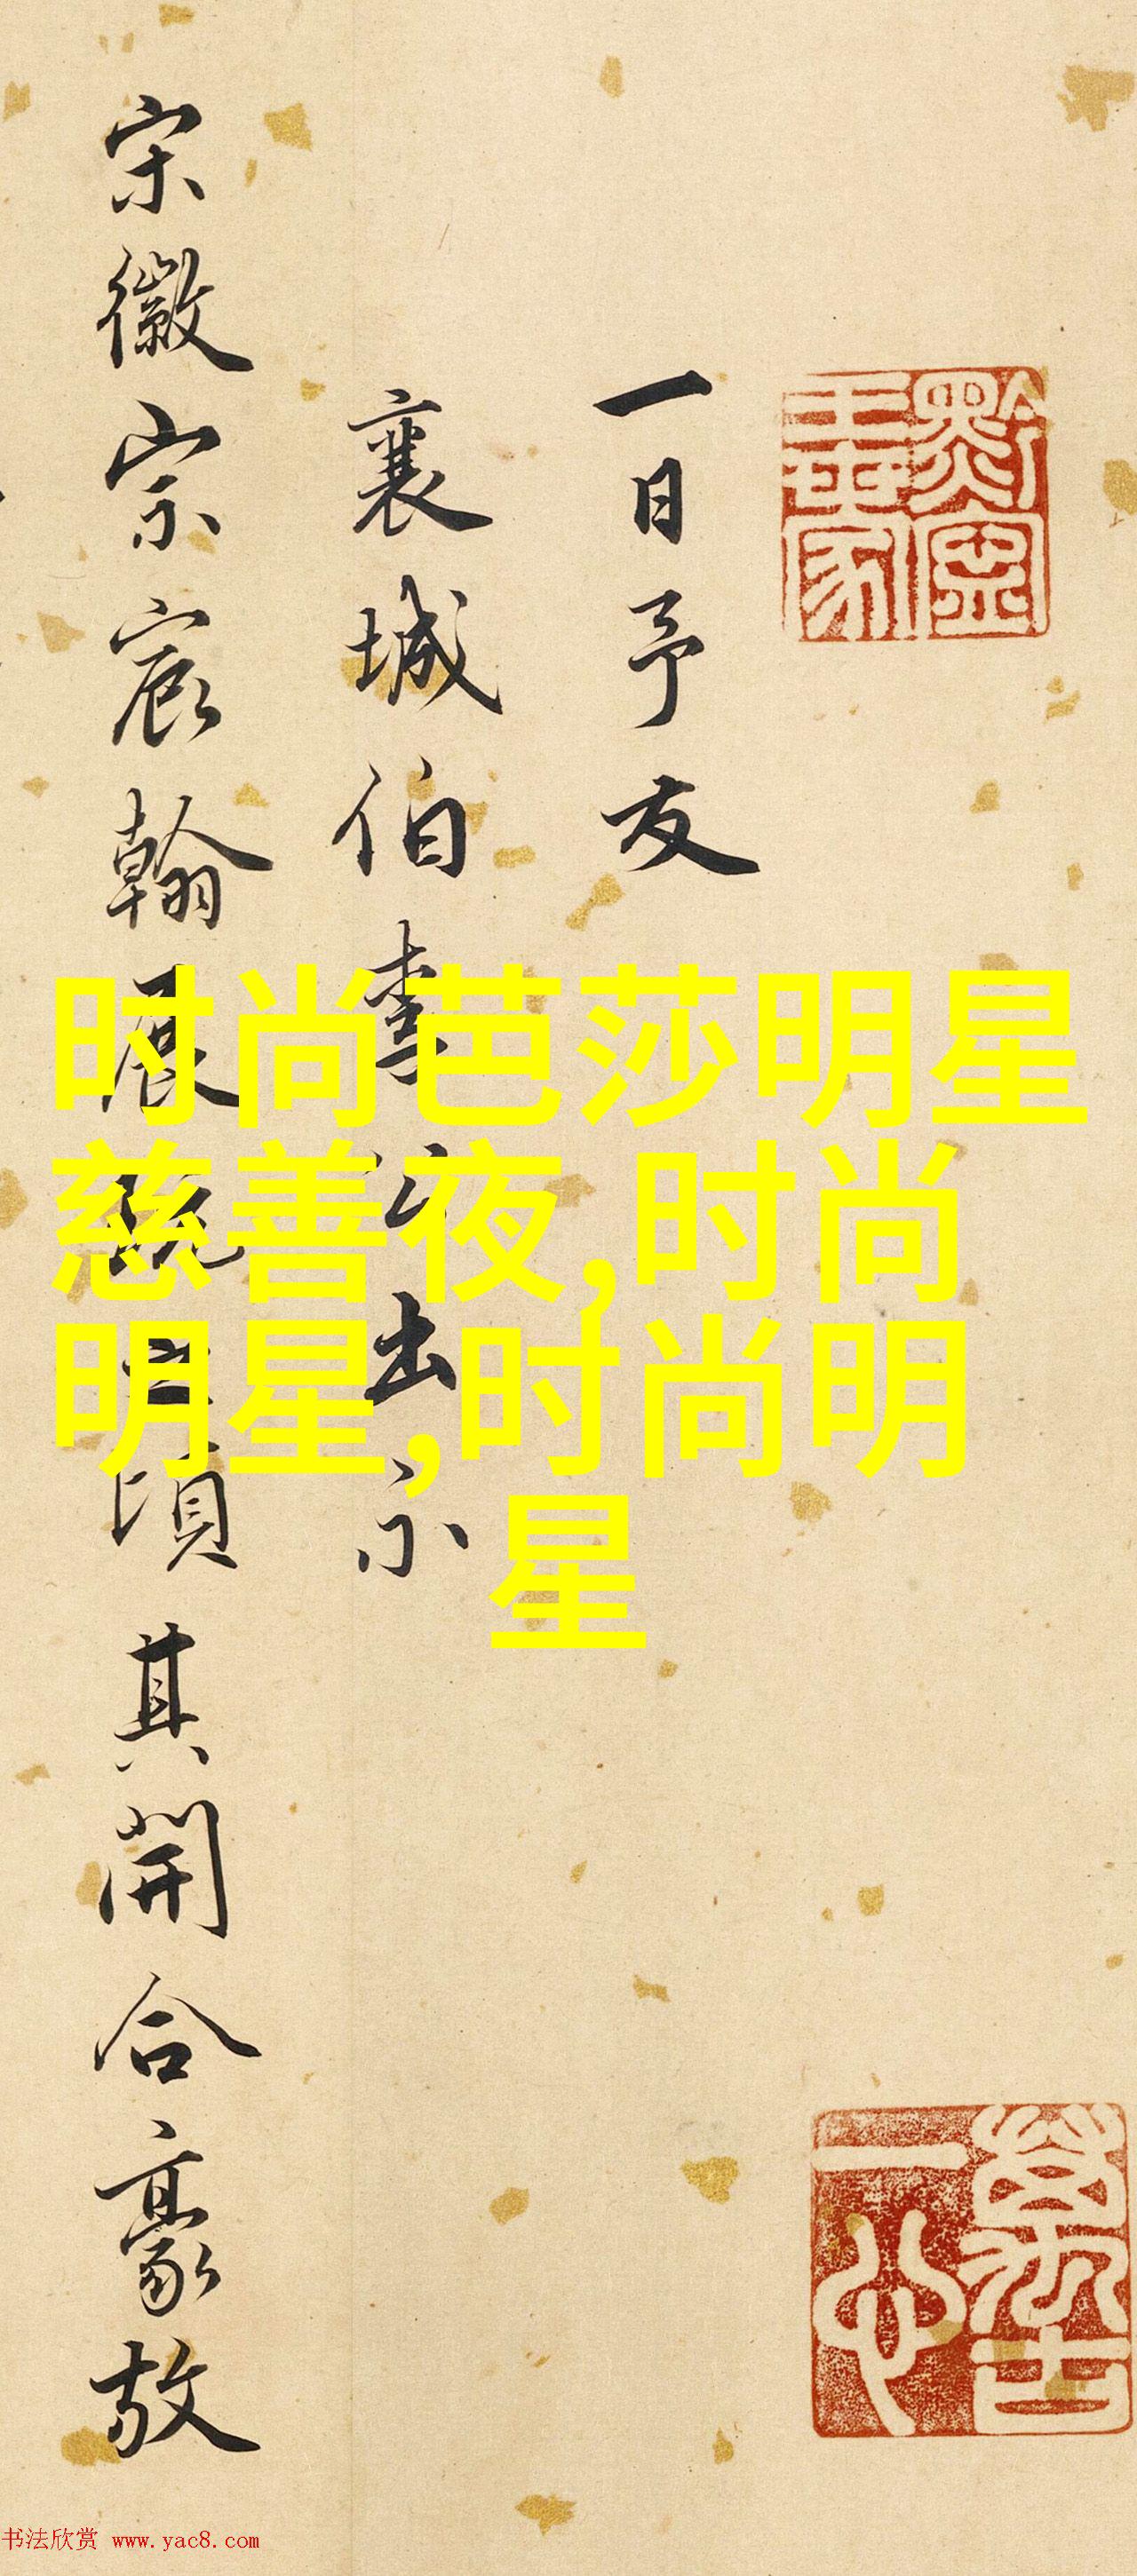 一日予友
襄城伯李公出示
宋徽宗宸翰展玩之頃其開合豪放
时尚芭莎明星
慈善夜,时尚
明星,时尚明
星
书法欣赏 www.yac8.com